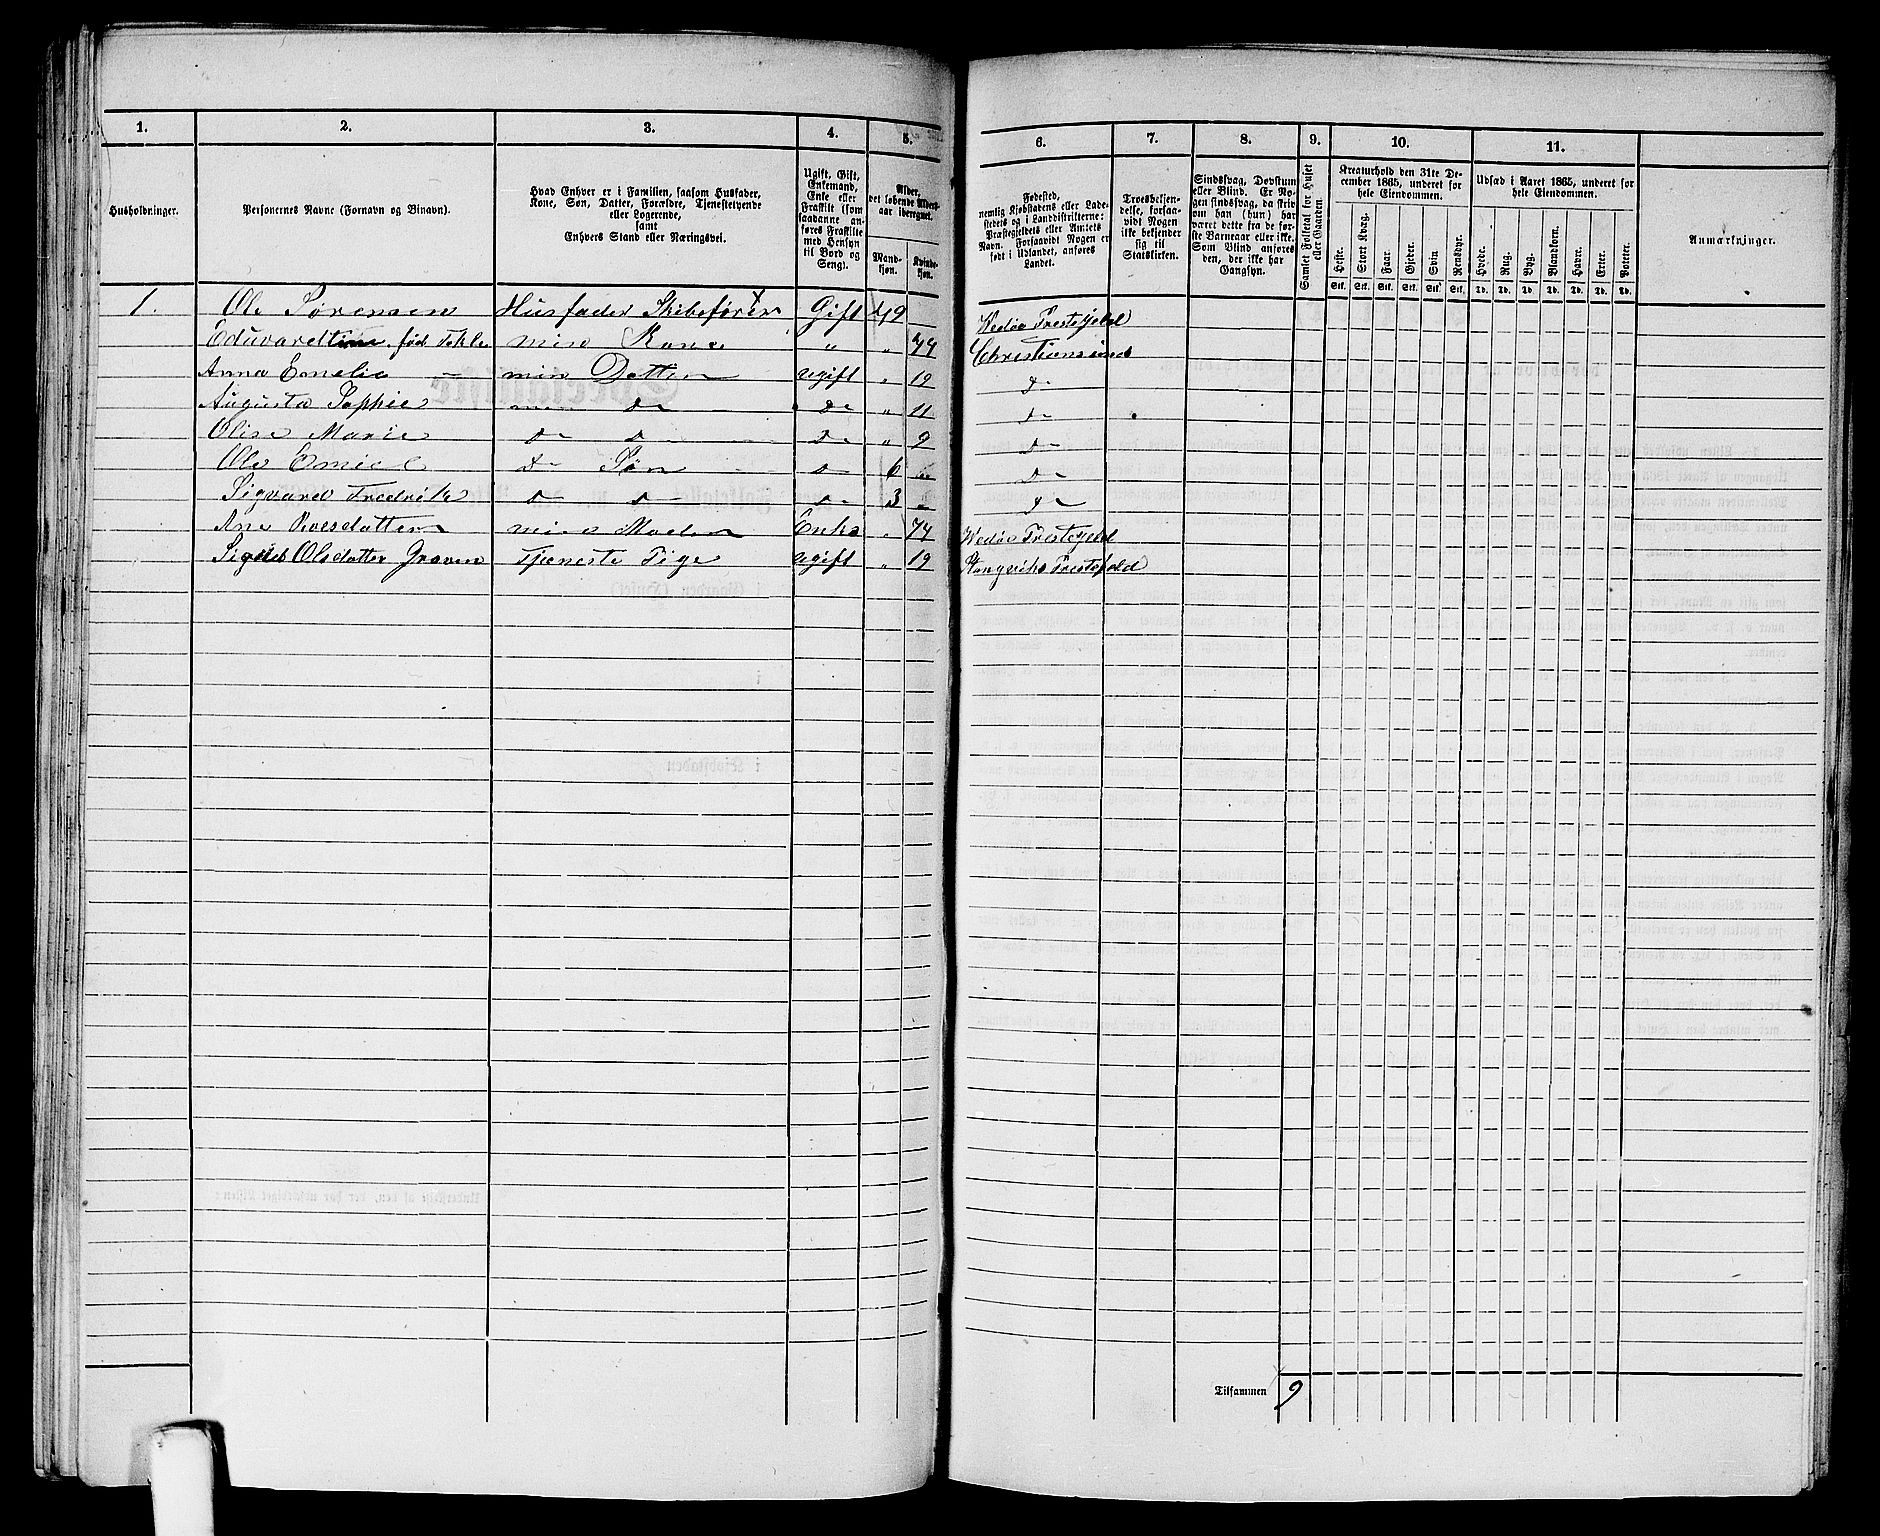 1. 2. 3. 4. 5. 6. 7. 8. 9. 10. 11.
Husholdninger.
Personernes Navne (Fornavn og Binavn).
Hvad Enhver er i Familien, saasom Husfader,
Kone, Søn, Datter, Forældre, Tjenestetyende
eller Logerende,
samt
Enhvers Stand eller Næringsvei.
Ugift, Gift,
Enkemand,
Enke eller
Fraskilt (som
saadanne an-
føres Fraskilte
med Hensyn
til Bord og
Seng).
Alder,
det løbende Alders-
aar iberegnet.
Mand-
kjøn.
Kvinde-
kjøn.
Fødested,
nemlig Kjøbstadens eller Lade-
stedets og i Landdistrikterne:
Præstegjeldets eller Amtets
Navn. Forsaavidt Nogen er
født i Udlandet, anføres
Landet.
Troesbekjen-
delse, forsaa-
vidt Nogen
ikke bekjender
sig til
Statskirken.
Sindssvag, Døvstum
eller Blind. Er No-
gen sindssvag, da skriv
om han (hun) har
været dette fra de før-
ste Barneaar eller ikke.
Som Blind anføres
den, der ikke har
Gangsyn.
Samlet Folketal for Huset
eller Gaarden.
Kreaturhold den 31te De-
cember 1865, underet for
hele Eiendommen.
Heste. Stort Kvæg. Faar. Gjeder. Svin Rensdyr.
Stk. Stk. Stk. Stk. Stk. Stk.
Udsæd i Aaret 1865, underet for
hele Eiendommen.
Hvede. Rug. Byg. Blandkorn. Havre. Erter. Poteter.
Td. Td. Td. Td. Td. Td. Td.
Anmærkninger.
1. Ole Sørensen Husfader Skibsfører Gift 49 Wedøe Prestegjeld
Eduvardtine fød min Kone " " 44 Christiansund
Anna Emelie min Datter ugift " 12 do
Augusta Sophie min do do " 11 do
Olise Marie do do do " 9 do
Ole Emiel do Søn do 6 do
Sigvard Fredrik do do do 3 do
Ane min Moder Enke " 74 Wedøe Prestegjeld
Olsdatter Graven Tjeneste Pige ugift " 19 Stangviks Prestegjeld
Tilsammen 9